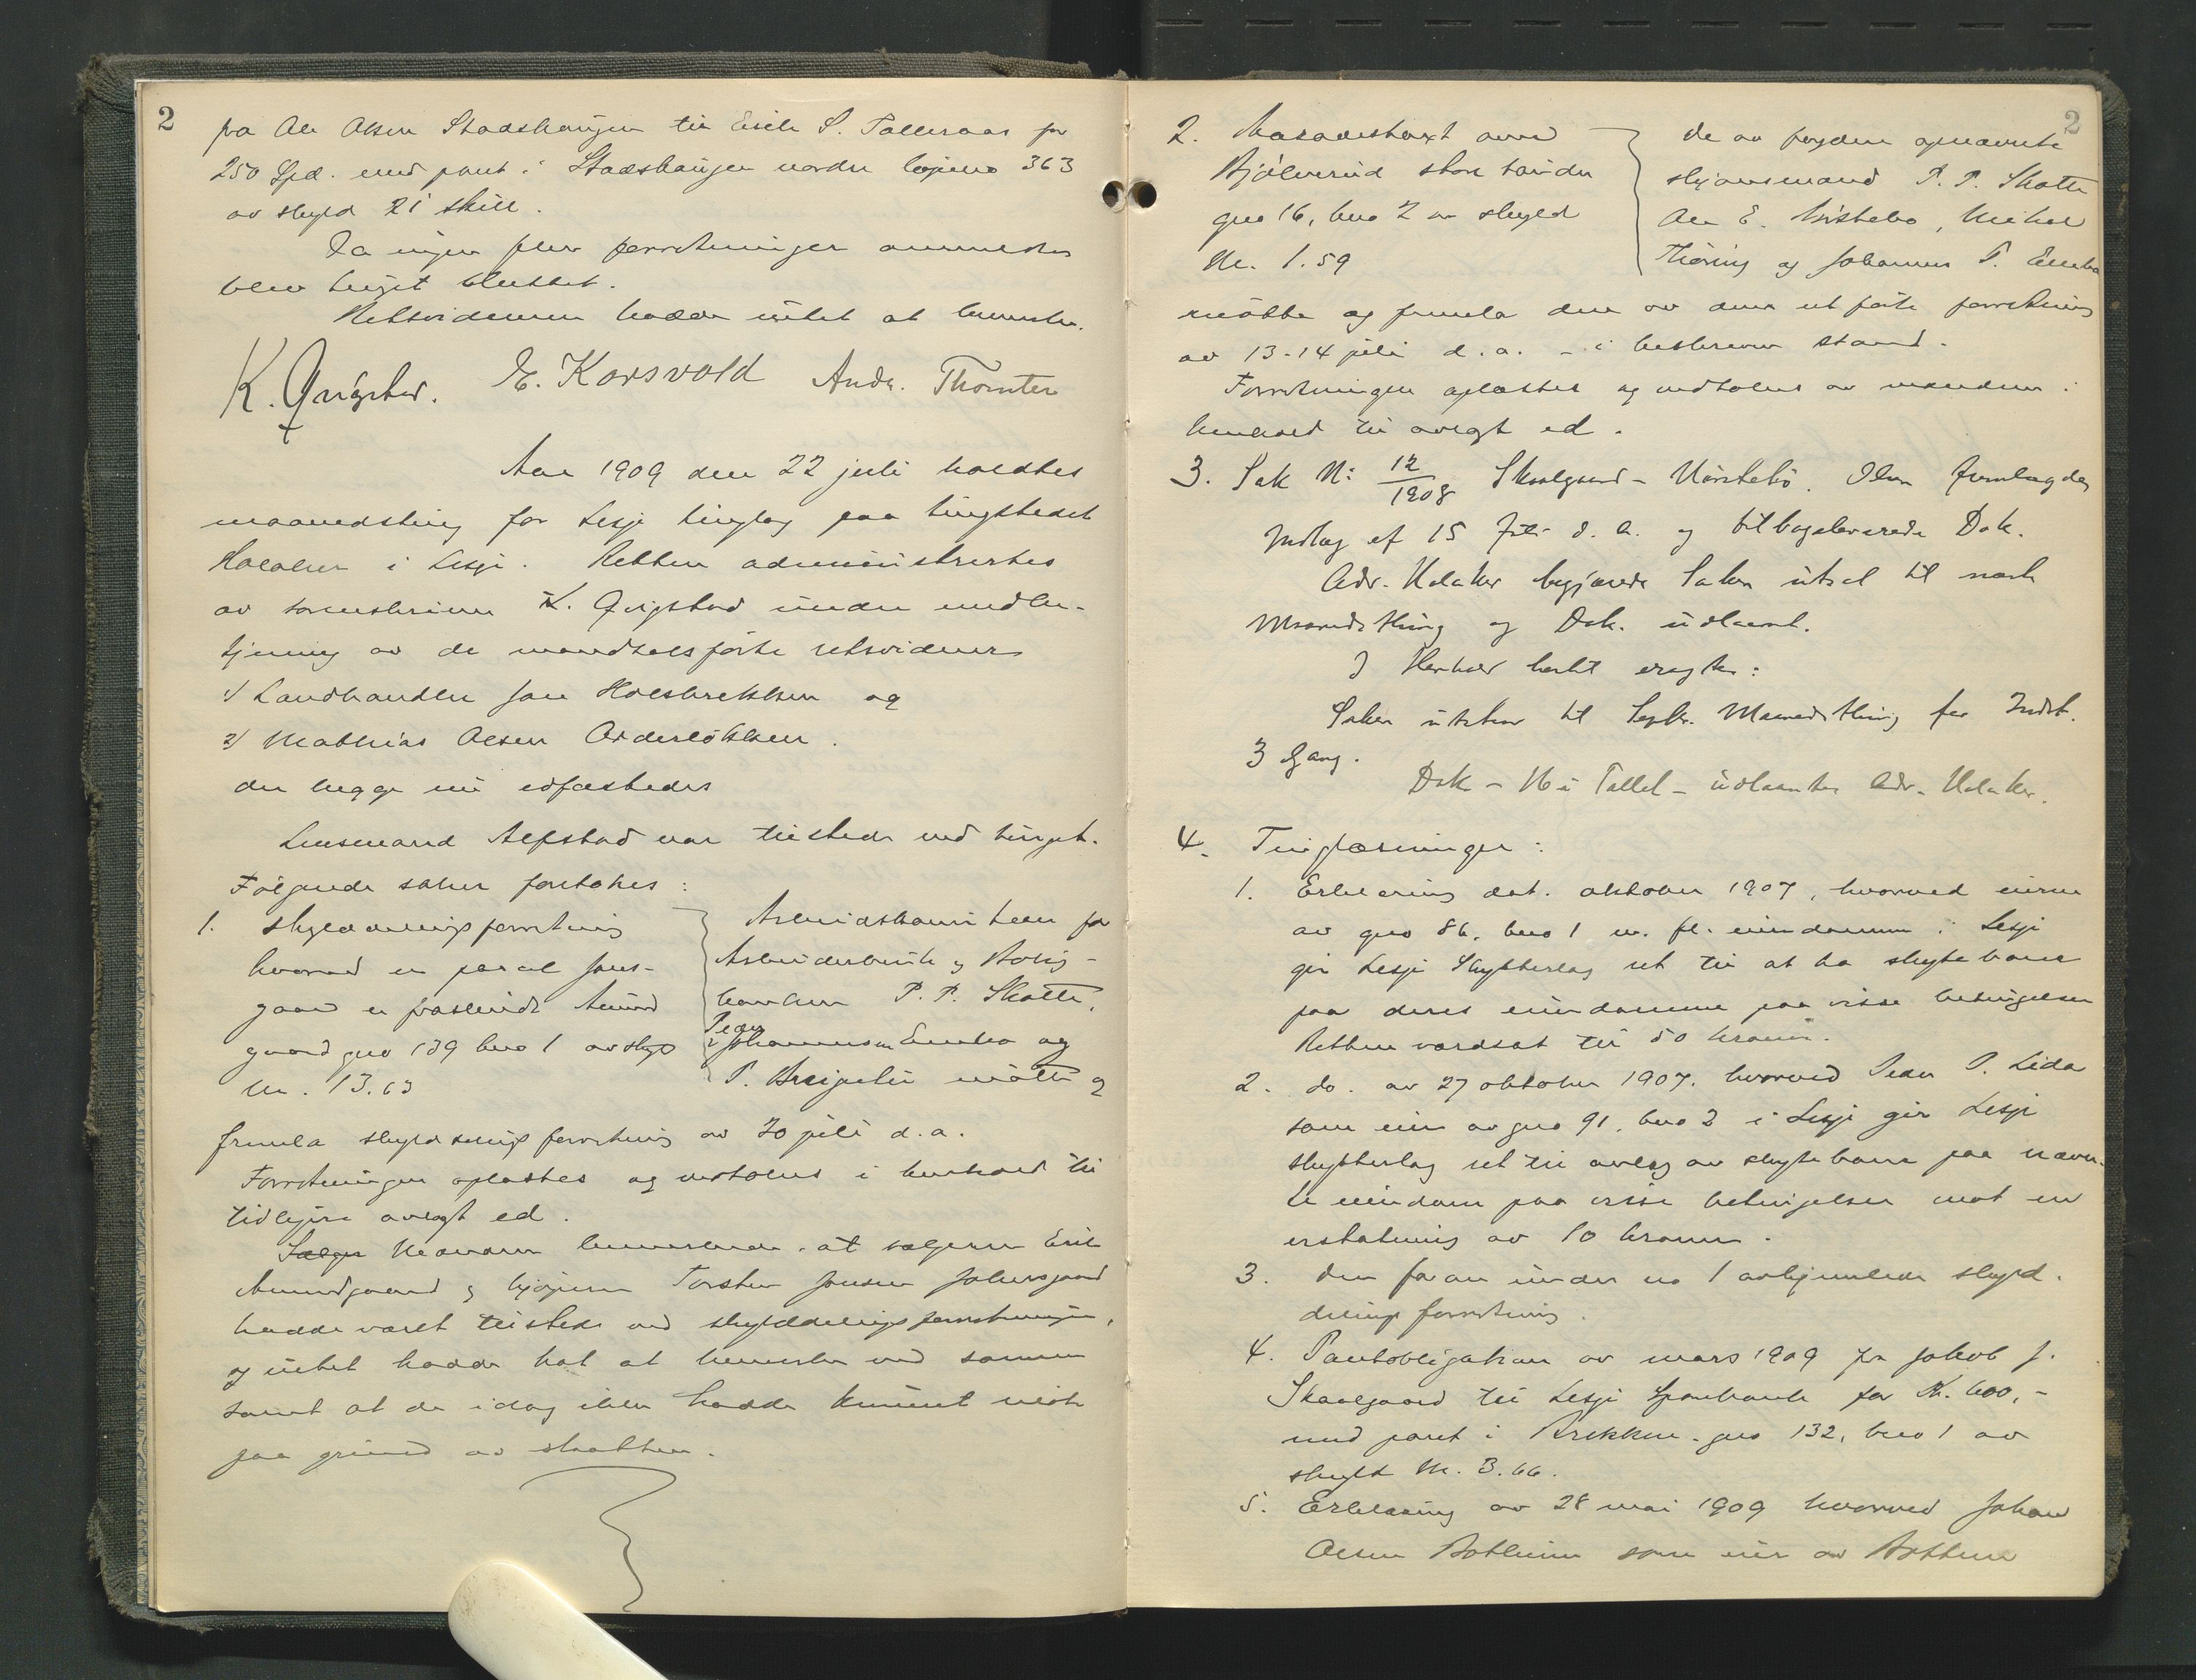 2
fra Ole Olsen Stadshaugen til Erik S. Tolleraas for
250 Spd. med pant i Stadshaugen nordre løpeno 363
av skyld 21 skill.
Da ingen flere forretninger anmeldtes
blev tinget sluttet.
Retsvidnerne hadde intet at bemerke.
K. Qvigstad. E. Korsvold Andr. Thomter
Aar 1909 den 22 juli holdtes
maanedsting for Lesje tinglag paa tingstedet
Holaker i Lesje. Retten administrertes
av sorenskriver K. Qvigstad under medbe-
tjening av de mandtalsførte retsvidner
1) Landhandler Jon Holsbrekken og
2) Mathias Olsen Ordersløkken.
der begge nu edfæstedes
Lensmand Alfstad var tilstede ved tinget.
Følgende saker foretokes:
1. Skylddelingsforretning
hvorved en parcel Jons-
gaard er fraskilt Amund
gaard gno 139 bno 1 av skyld
Mk. 13.63
Arbeidskomiteen for
Arbeiderbruk og Bolig-
banken P. P. Skotte,
Peder
Johannesen Enebo og
P. Breijulie møtte og
fremla skylddelingsforretning av 20 juli d.a.
Forretningen oplæstes og vedtokes i henhold til
tidligere avlagt ed.
Sælger Mændene bemerkede at sælgeren Erik
Amundgaard og kjøperen Torsten Jonsen Johnsgaard
hadde været tilstede ved skylddelingsforretningen,
og intet hadde hat at bemerke ved samme
samt at de idag ikke hadde kunnet møte
paa grund av slaatten.
2
2. aaved
Bjølverud store søndre
gno 16, bno 2 av skyld
Mk. 1.59
de av fogden opnævnte
skjønsmænd P. P. Skotte
Ole E. Kvistebo, Mikal
Thøring og Johannes P. Enebo
møtte og fremla den av dem utførte forretning
av 13-14 juli d.a. – i beskreven stand.
Forretningen oplæstes og vedtokes av mændene i
henhold til avlagt ed.
3. Sak N: 12/1908 Skaalgaard – Mørstebø. Olsen fremlagde
Indlæg af 15 Juli d.a. og tilbageleverede Dok.
Adv. Holaker begjærede Saken utsat til næste
Maanedsthing og Dok. udlaant.
I Henhold hertil eragtes:
Saken utsættes til Septbr. Maanedsthing for Indst.
3 Gang.
Dok – N i Tallet – udlaantes Adv. Holaker.
4. Tinglæsninger:
1. Erklæring dat. oktober 1907, hvorved eierne
av gno 86, bno 1 m. fl. eiendomme i Lesje
gir Lesje Skytterlag ret til at ha skytebane
paa deres eiendomme paa visse betingelser
Retten værdsat til 50 kroner.
2. do. av 27 oktober 1907. hvorved Peder P. Lida
som eier av gno 91, bno 2 i Lesje gir Lesje
skytterlag ret til anlæg av skytebane paa nævn-
te eiendom paa visse betingelser mot en
erstatning av 10 kroner.
3. Den foran under no 1 avhjemlede skyld-
delingsforretning.
4. Pantobligation av mars 1909 fra Jakob J.
Skaalgaard til Lesje Sparebank for Kr. 600,-
med pant i Brekken. gno 132, bno 1 av
skyld Mk. 3.66.
5. Erklæring av 28 mai 1909 hvorved Johan
Olsen Botheim som eier av Botheim